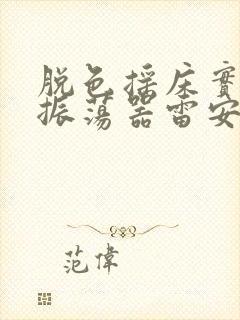 脱色摇床實
振荡器雷安
范偉